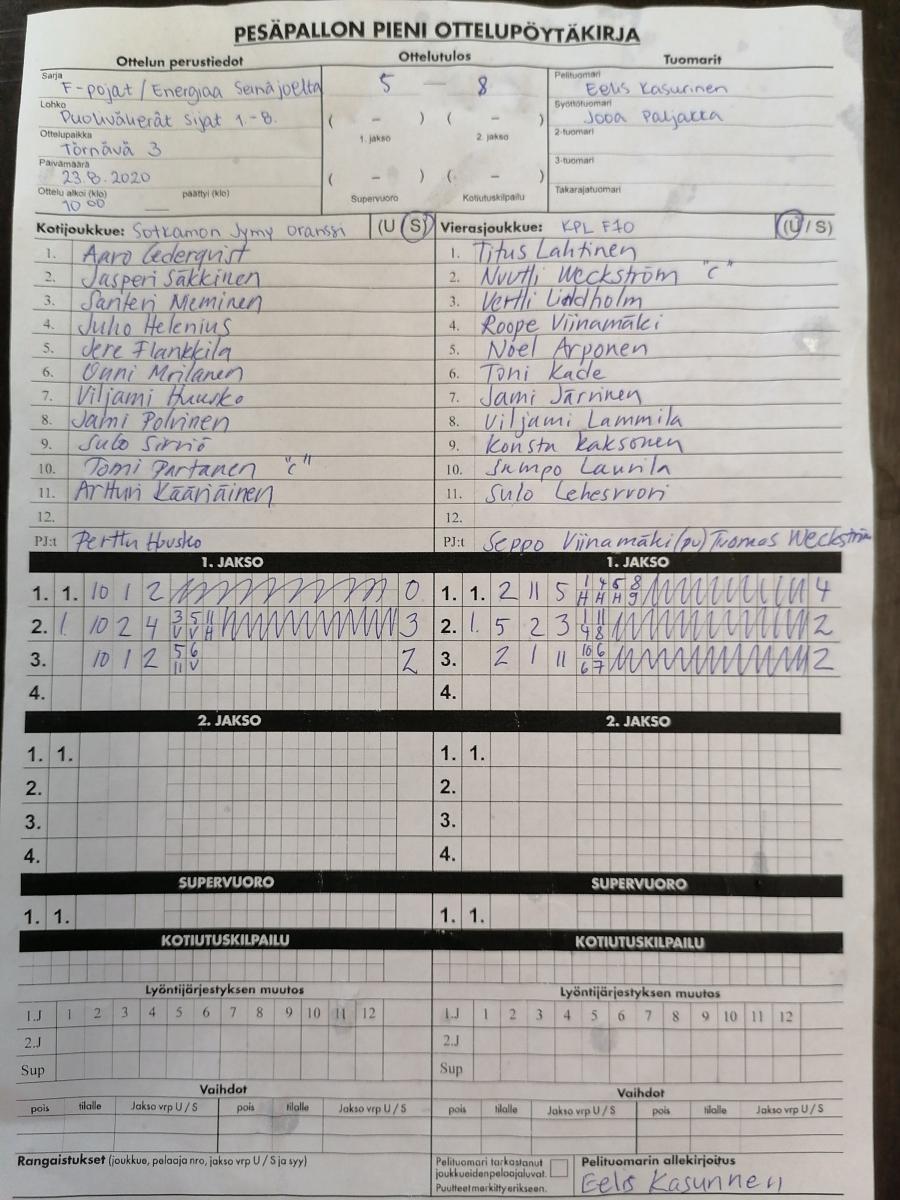 PESÄPALLON PIENI OTTELUPÖYTÄKIRJA
Ottelun perustiedot Ottelutulos Tuomarit
Sarja F-pojat / Energiaa Seinäjoelta 5 — 8 Pelituomari Eelis Kasurinen
Lohko Puolivälierät Sijat 1-8. ( – ) ( – ) Syöttötuomari Jooa Paljakka
Ottelupaikka Törnävä 3 1. jakso 2. jakso 2-tuomari
Päivämäärä 23.8.2020 ( – ) ( – ) 3-tuomari
Ottelu alkoi (klo) 10 00 päättyi (klo) Supervuoro Kotiutuskilpailu Takarajatuomari
Kotijoukkue: Sotkamon Jymy oranssi (U S) Vierasjoukkue: KPL F10 (U / S)
1. Aaro Cederqvist 1. Titus Lahtinen
2. Jasperi Säkkinen 2. Nuutti Weckström "C"
3. Santeri Meminen 3. Vertti Lindholm
4. Juho Helenius 4. Roope Viinamäki
5. Jere Flankkila 5. Noel Arponen
6. Onni 6. Toni Kade
7. Viljami Huusko 7. Jami Järvinen
8. Jami Polvinen 8. Viljami Lammila
9. Sulo Sirviö 9. Konsta Kaksonen
10. Tomi Partanen "C" 10. Sampo Laurila
11. Artturi Kääriäinen 11. Sulo Lehesvuori
12. 12.
PJ:t Perttu Huusko PJ:t Seppo Viinamäki (pv) Tuomas Weckström
1. JAKSO 1. JAKSO
1. 1. 10 1 2 0 1. 1. 2 11 5 1 4 5 8 4
H H H 9
2. 1. 10 2 4 3 5 11 3 2. 1. 5 2 3 1 11 2
V V H 4 8
3. 10 1 2 5 6 2 3. 2 1 11 10 6 2
11 V 6 7
4. 4.
2. JAKSO 2. JAKSO
1. 1. 1. 1.
2. 2.
3. 3.
4. 4.
SUPERVUORO SUPERVUORO
1. 1. 1. 1.
KOTIUTUSKILPAILU KOTIUTUSKILPAILU
Lyöntijärjestyksen muutos Lyöntijärjestyksen muutos
1.J 1 2 3 4 5 6 7 8 9 10 11 12 1.J 1 2 3 4 5 6 7 8 9 10 11 12
2.J 2.J
Sup Sup
Vaihdot Vaihdot
pois tilalle Jakso vrp U / S pois tilalle Jakso vrp U / S pois tilalle Jakso vrp U / S pois tilalle Jakso vrp U / S
Rangaistukset (joukkue, pelaaja nro, jakso vrp U / S ja syy) Pelituomari tarkastanut joukkueidenpelaajaluvat. Puutteet merkitty erikseen. Pelituomarin allekirjoitus
Eelis Kasurinen